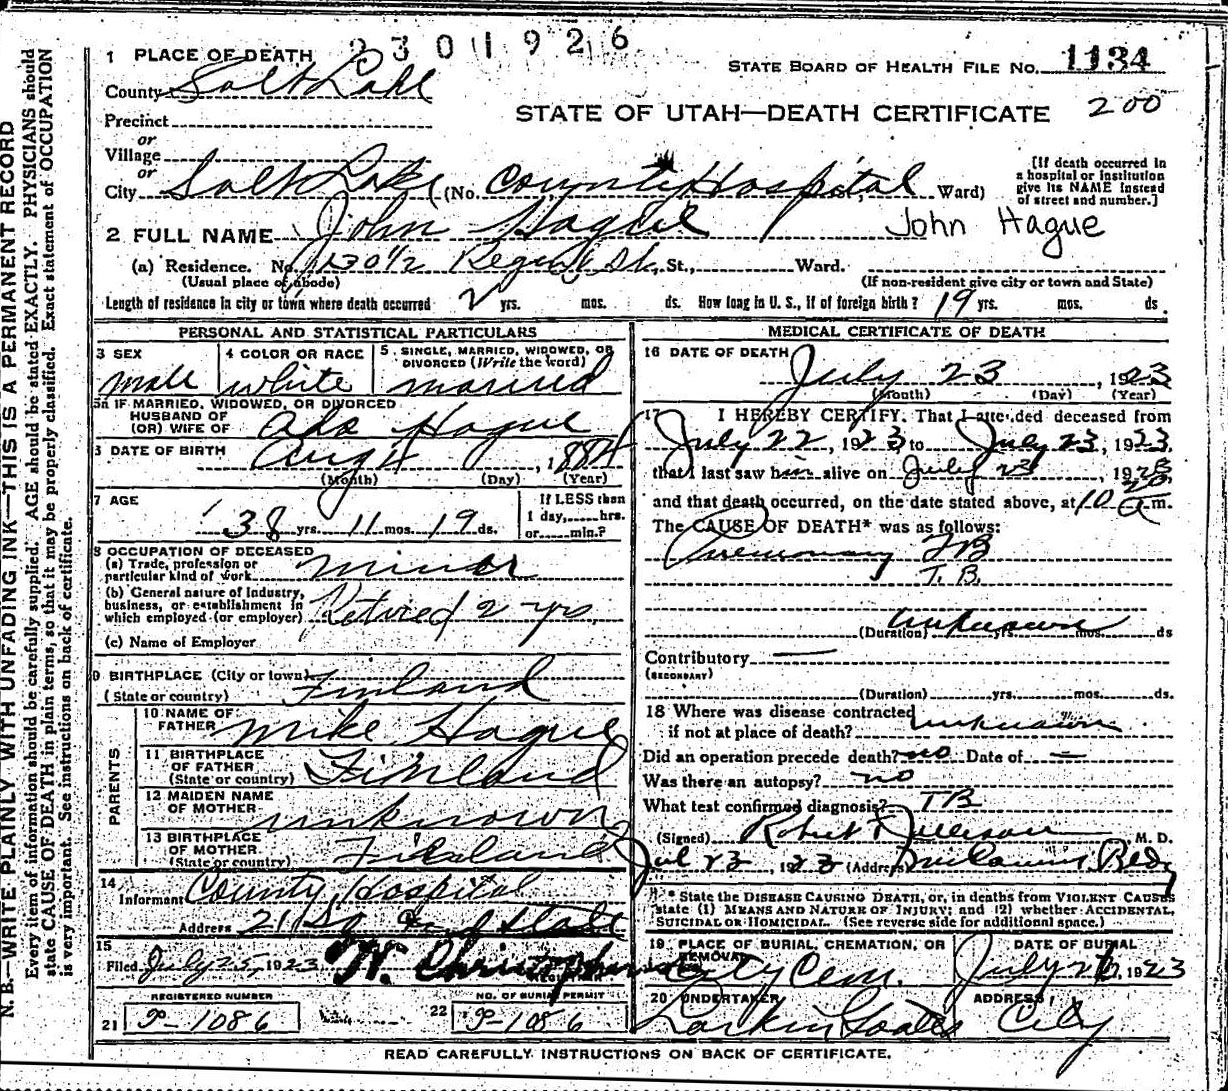 2301926
1 PLACE OF DEATH
STATE BOARD OF HEALTH FILE NO. 1134
County Salt Lake
STATE OF UTAH—DEATH CERTIFICATE 200
Precinct
or
Village
or
City Salt Lake (No. County Hospital St., Ward)
[If death occurred in
a hospital or institution
give its NAME instead
of street and number.]
2 FULL NAME John Hague John Hague
(a) Residence. No. 130 1/2 Regent St. St., Ward.
(Usual place of abode) (If non-resident give city or town and State)
Length of residence in city or town where death occurred 2 yrs. mos. ds. How long in U. S., if of foreign birth? 19 yrs. mos. ds.
PERSONAL AND STATISTICAL PARTICULARS
3 SEX 4 COLOR OR RACE 5 SINGLE, MARRIED, WIDOWED, OR
DIVORCED (Write the word)
male white married
5a IF MARRIED, WIDOWED, OR DIVORCED
HUSBAND OF
(OR) WIFE OF Ada Hague
6 DATE OF BIRTH Aug 4, 1884
(Month) (Day) (Year)
7 AGE
If LESS than
1 day, hrs.
or min.?
38 yrs. 11 mos. 19 ds.
8 OCCUPATION OF DECEASED
(a) Trade, profession or
particular kind of work minor
(b) General nature of industry,
business, or establishment in
which employed (or employer) Retired 2 yrs.
(c) Name of Employer
9 BIRTHPLACE (City or town)
(State or country) Finland
PARENTS
10 NAME OF
FATHER Mike Hague
11 BIRTHPLACE
OF FATHER
(State or country) Finland
12 MAIDEN NAME
OF MOTHER unknown
13 BIRTHPLACE
OF MOTHER
(State or country) Finland
14
Informant County Hospital
Address 21 So and State
15
Filed July 25, 1923 W. Christopherson
REGISTRAR
REGISTERED NUMBER NO. OF BURIAL PERMIT
21 P-1086 22 P-1086
MEDICAL CERTIFICATE OF DEATH
16 DATE OF DEATH
July 23, 1923
(Month) (Day) (Year)
17 I HEREBY CERTIFY, That I attended deceased from
July 22, 1923 to July 23, 1923
that I last saw him alive on July 23, 1923
and that death occurred, on the date stated above, at 10 20 a m.
The CAUSE OF DEATH* was as follows:
TB
T. B.
(Duration) unknown yrs. mos. ds
Contributory —
(SECONDARY)
(Duration) yrs. mos. ds.
18 Where was disease contracted
if not at place of death? unknown
Did an operation precede death? no Date of —
Was there an autopsy? no
What test confirmed diagnosis? TB
(Signed) Robert M. D.
Jul 23, 1923 (Address) Bldg
* State the DISEASE CAUSING DEATH, or, in deaths from VIOLENT CAUSES
state (1) MEANS AND NATURE OF INJURY; and (2) whether ACCIDENTAL,
SUICIDAL OR HOMICIDAL. (See reverse side for additional space.)
19 PLACE OF BURIAL, CREMATION, OR
REMOVAL
DATE OF BURIAL
City Cem. July 26, 1923
20 UNDERTAKER ADDRESS
Larkin City
READ CAREFULLY INSTRUCTIONS ON BACK OF CERTIFICATE.
N. B.—WRITE PLAINLY WITH UNFADING INK—THIS IS A PERMANENT RECORD
Every item of information should be carefully supplied. AGE should be stated EXACTLY. PHYSICIANS should
state CAUSE OF DEATH in plain terms, so that it may be properly classified. Exact statement of OCCUPATION
is very important. See instructions on back of certificate.